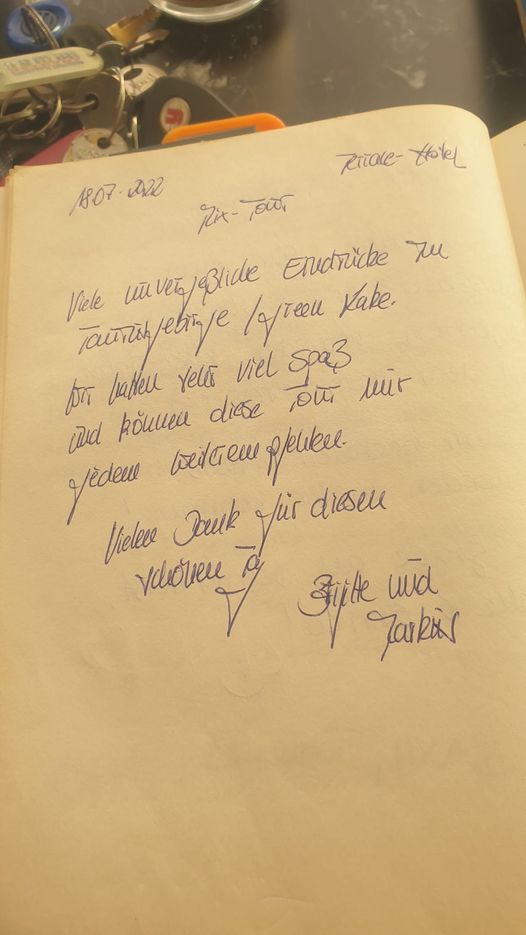 18.07.2022
Hotel
Mix-Tour
Viele unvergeßliche Eindrücke im
Taurusgebirge / green Kake.
Wir hatten sehr viel Spaß
und können diese Tour nur
jedem weiterempfehlen.
Vielen Dank für diesen
schönen Tag
Brigitte und
Markus